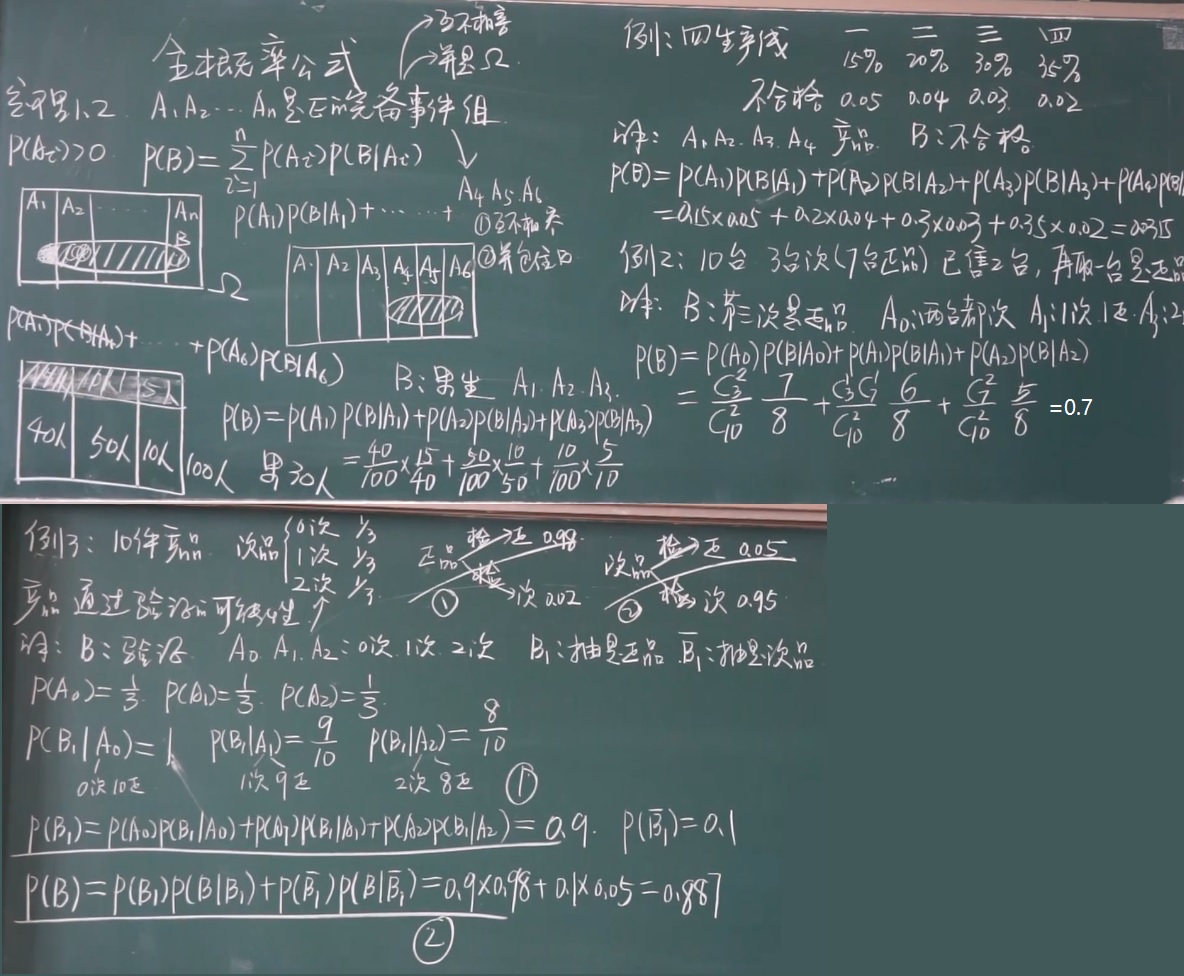 全概率公式
→互不相容
→并是Ω
定理1.2 A₁A₂…An是E的完备事件组
P(Aᵢ)>0 P(B)=∑ⁿᵢ₌₁P(Aᵢ)P(B|Aᵢ)
P(A₁)P(B|A₁)+……+
A₄ A₅ A₆
①互不相容
②并包住B
A₁ A₂ An
B
Ω
A₁ A₂ A₃ A₄ A₅ A₆
P(A₁)P(B|A₁)+……+P(A₆)P(B|A₆)
10人 5人
40人 50人 10人 100人
B:男生 A₁.A₂.A₃.
P(B)=P(A₁)P(B|A₁)+P(A₂)P(B|A₂)+P(A₃)P(B|A₃)
男30人 =40/100×15/40+50/100×10/50+10/100×5/10
例1:四生产线 一 二 三 四
15% 20% 30% 35%
不合格 0.05 0.04 0.03 0.02
解: A₁.A₂.A₃.A₄ 产品 B:不合格
P(B)=P(A₁)P(B|A₁)+P(A₂)P(B|A₂)+P(A₃)P(B|A₃)+P(A₄)P(B|
=0.15×0.05+0.2×0.04+0.3×0.03+0.35×0.02=0.0315
例2:10台 3台次(7台正品)已售2台,再取一台是正品
解: B:第三次是正品 A₀:两台都次 A₁:1次1正.A₂:2
P(B)=P(A₀)P(B|A₀)+P(A₁)P(B|A₁)+P(A₂)P(B|A₂)
=C₃²/C₁₀² 7/8+C₃¹C₇¹/C₁₀² 6/8+C₇²/C₁₀² 5/8 =0.7
例3:10件产品 次品{0次 1/3
1次 1/3
2次 1/3
正品 检→正 0.98
检→次 0.02
①
次品 检→正 0.05
检→次 0.95
②
产品通过验收的可能性
解: B:验收 A₀.A₁.A₂:0次.1次.2次 B₁:抽是正品 B̄₁:抽是次品
P(A₀)=1/3 P(A₁)=1/3 P(A₂)=1/3
P(B₁|A₀)=1 P(B₁|A₁)=9/10 P(B₁|A₂)=8/10
0次10正 1次9正 2次8正 ①
P(B₁)=P(A₀)P(B₁|A₀)+P(A₁)P(B₁|A₁)+P(A₂)P(B₁|A₂)=0.9. P(B̄₁)=0.1
P(B)=P(B₁)P(B|B₁)+P(B̄₁)P(B|B̄₁)=0.9×0.98+0.1×0.05=0.887
②